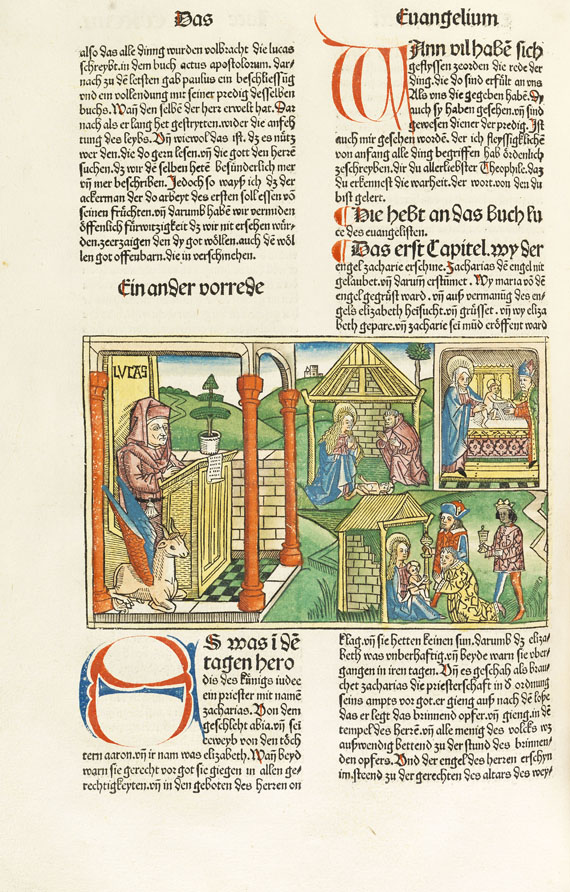 Das
Euangelium
also das alle dinng wurden volbracht die lucas
schreybt.in dem buch actus apostolorum. dar⸗
nach zu dē letsten gab paulus ein beschliessūg
vnd ein vollendung mit seiner predig desselben
buchs. Wañ den selbē der herr erwelt hat. Dar
nach als er lang het gestrytten. wider die anfech
tung des leybs. Vñ wievol das ist. dz es nütz
wer den. die do gern lesen. vñ die gott den herrē
suchen. dz wir dē selben hetē besünderlich mer
vñ mer beschriben. Jedoch so wayß ich dz der
ackerman der do arbeyt des ersten soll essen vō
seinen früchten. vñ darumb habē wir vermiden
öffenlich fürwitzigkeit dz wir nit ersehen wür⸗
den. zeerzaigen den dy got wöllen. auch dē wöl
len got offenbarn. die in verschmehen.
Ein ander vorrede
WAnn vil habē sich
geflyssen zeorden die rede der
ding. die do sind erfült an vns
Als vns die gegeben habē. Dy
auch sy haben gesehen. vñ sind
gewesen diener der predig. Ist
auch mir gesehen wordē. der ich fleyssigklichē
von anfang alle ding begriffen hab ördenlich
zeschreyben. dir du allerliebster Theophile. daz
du erkennest die warheit. der wort. von den du
bist gelert.
Hie hebt an das buch lu
ce des euangelisten.
Das erst Capitel. wy der
engel zacharie erschine. Zacharias dē engel nit
gelaubet. vñ darum erstūmet. Wy maria vō dē
engel gegrüst ward. vñ auß vermanūg des en⸗
gels elizabeth heisucht. vñ grüsset. vñ wy eliza
beth gepare. vñ zacharie sei mūd eröffent ward
LVCAS
ES was ī dē
tagen hero
dis des künigs iudee
ein priester mit namē
zacharias. Von dem
geschlecht abia. vñ sei
eeweyb von den töch
tern aaron. vñ ir nam was elizabeth. Wañ beyd
warn sie gerecht vor got sie giegen in allen ge⸗
rechtigkeyten. vñ in den geboten des herren on
klag. vñ sie hetten keinen sun. darumb dz eliza⸗
beth was vnberhaftig. vñ beyde warn sie vber⸗
gangen in iren tagen. Vñ es geschah als brau⸗
chet zacharias die priesterschaft in d ordnung
seins ampts vor got. er gieng auß nach dē lose
das er legt das brinnend opfer. vñ gieng. in dē
tempel des herrē. vñ alle menig des volcks wz
außwendig bettend zu der stund des brinnen⸗
den opfers. Vnd der engel des herren erschyn
im. steend zu der gerechten des altars des wey⸗